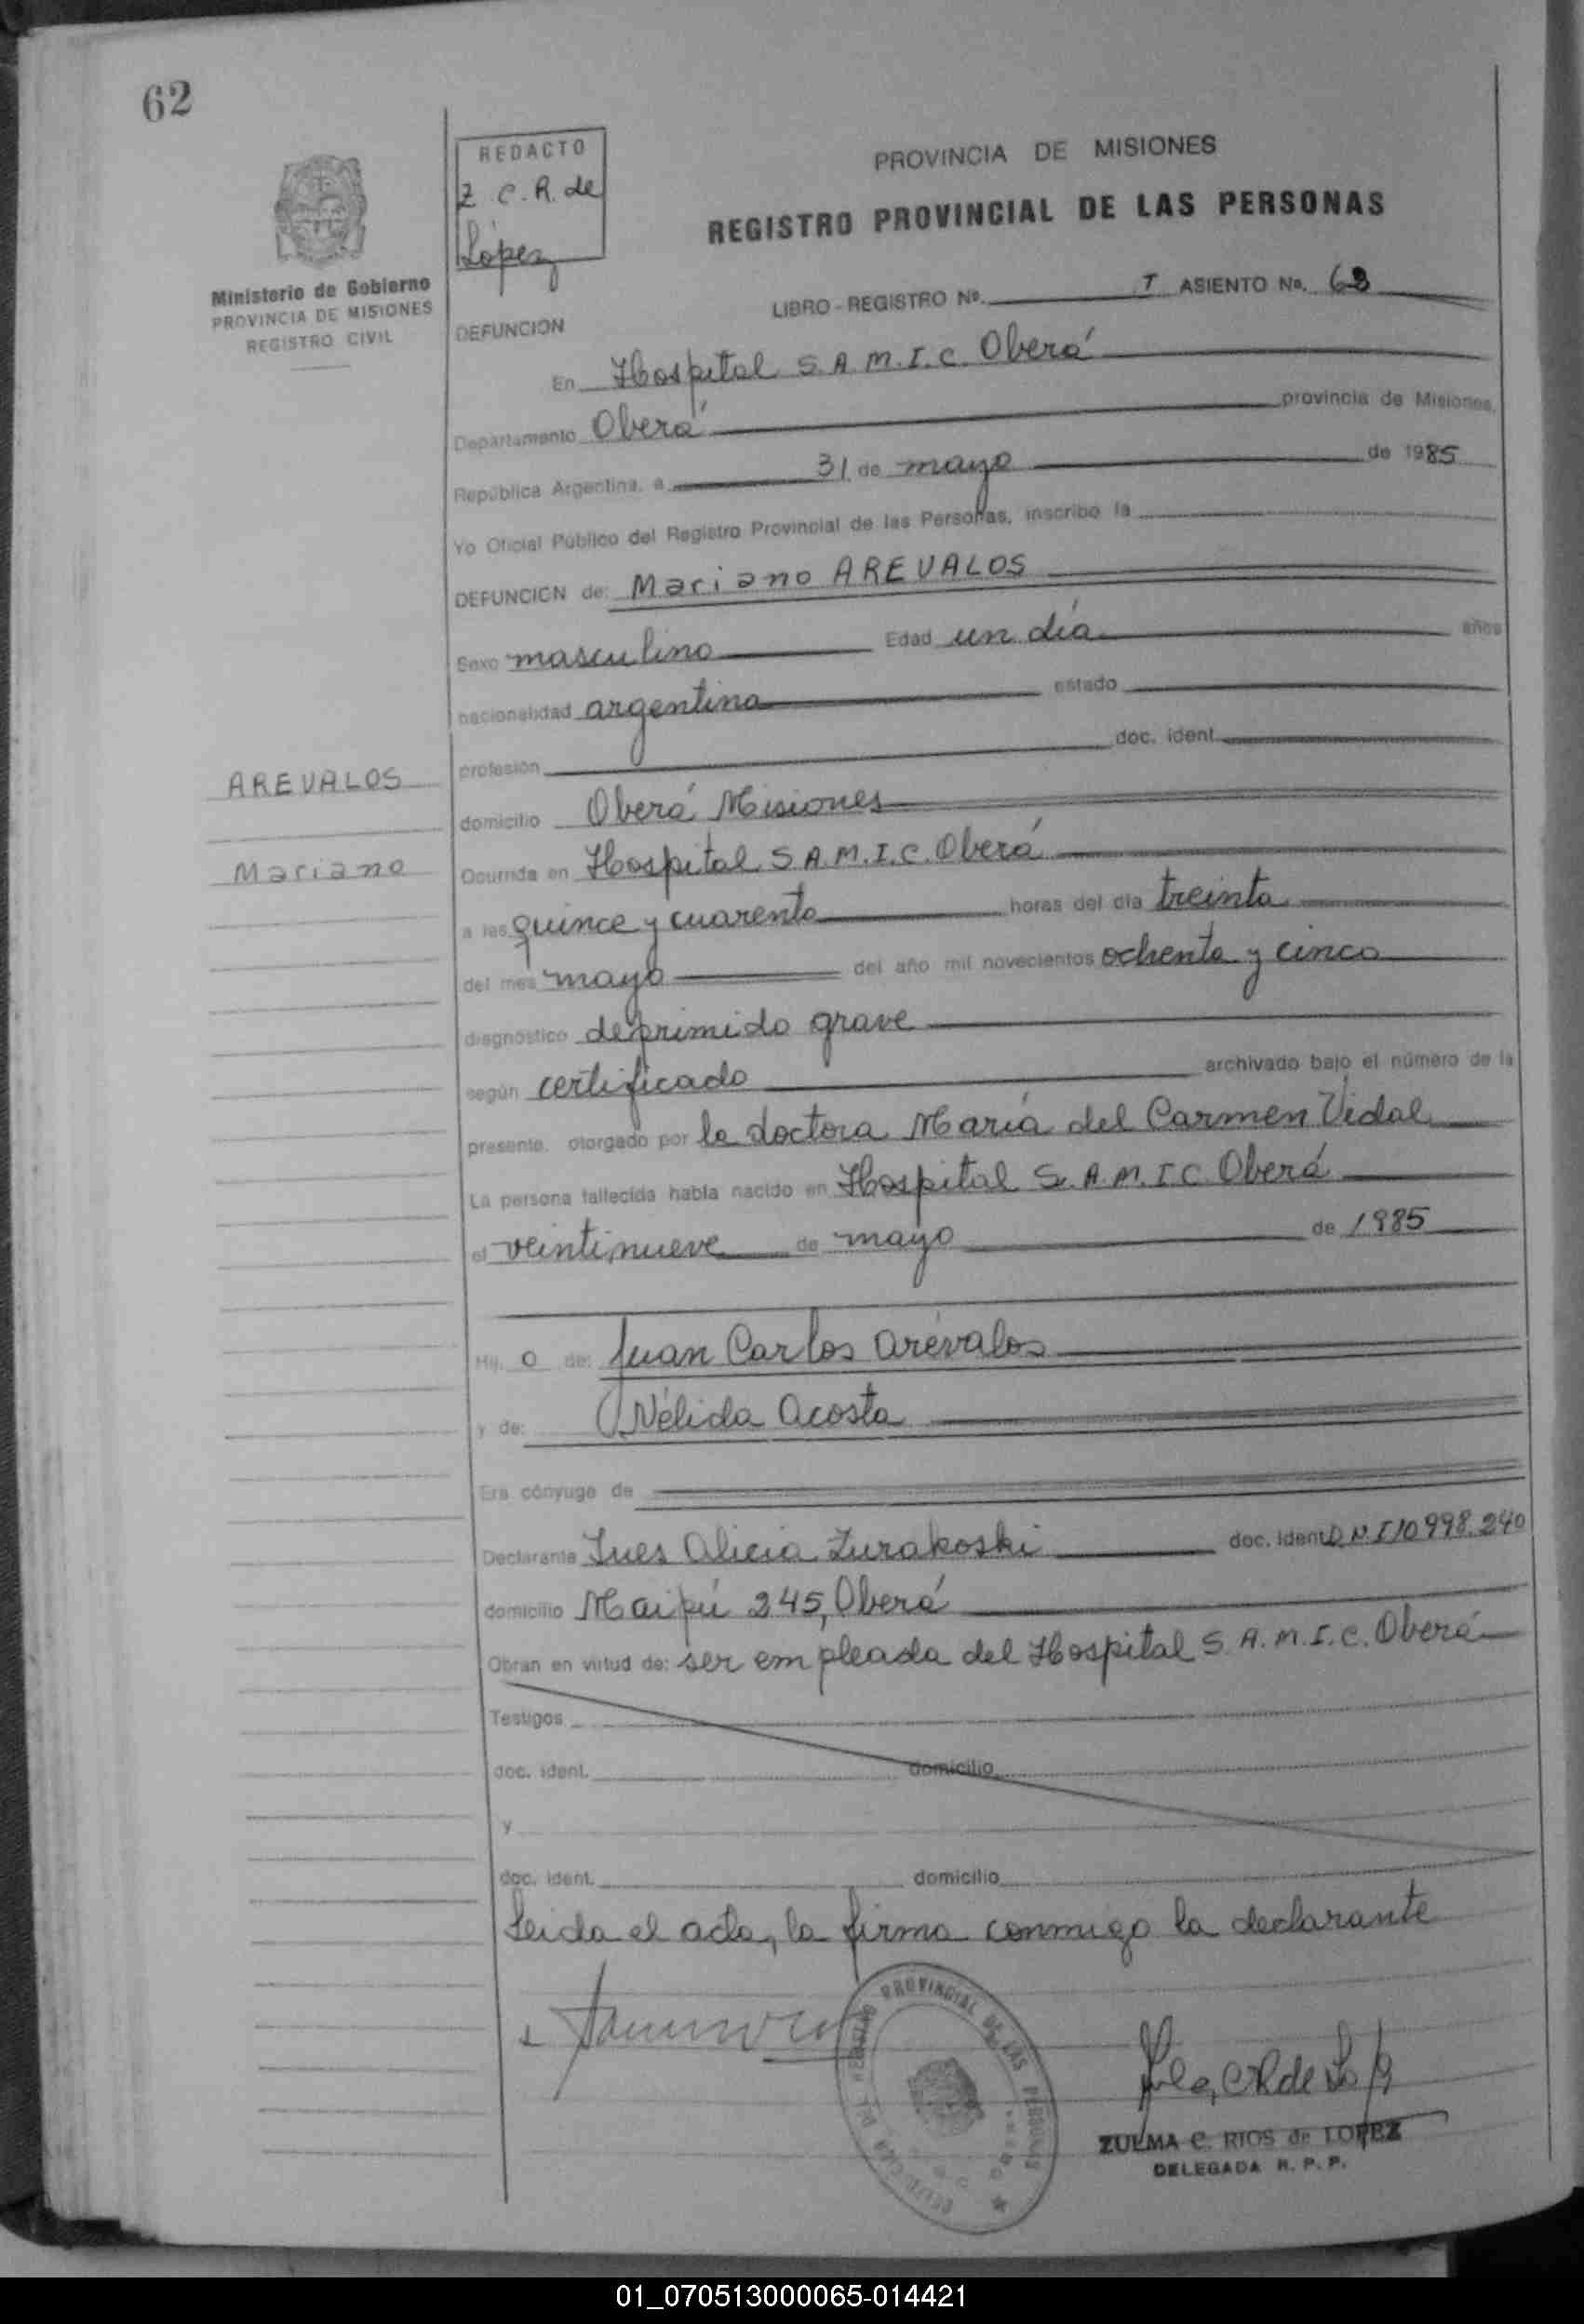 62
REDACTO
Z. C. R. de
López
Ministerio de Gobierno
PROVINCIA DE MISIONES
REGISTRO CIVIL
PROVINCIA DE MISIONES
REGISTRO PROVINCIAL DE LAS PERSONAS
LIBRO-REGISTRO Nº. T ASIENTO No. 63
DEFUNCION
En Hospital S.A.M.I.C. Oberá
Departamento Oberá provincia de Misiones,
República Argentina, a 31 de mayo de 1985
Yo Oficial Público del Registro Provincial de las Personas, inscribo la
DEFUNCION de: Mariano AREVALOS
Sexo masculino Edad un día años
nacionalidad argentina estado
profesión doc. ident.
AREVALOS
Mariano
domicilio Oberá Misiones
Ocurrida en Hospital S.A.M.I.C. Oberá
a las quince y cuarenta horas del día treinta
del mes mayo del año mil novecientos ochenta y cinco
diagnóstico deprimido grave
según certificado archivado bajo el número de la
presente, otorgado por la doctora María del Carmen Vidal
La persona fallecida había nacido en Hospital S.A.M.I.C. Oberá
el veintinueve de mayo de 1985
Hij o de: Juan Carlos Arévalos
y de: Nélida Acosta
Era cónyuge de
Declarante Ines Alicia Zurakoski doc. ident D.N.I 10998.240
domicilio Maipú 245, Oberá
Obran en virtud de: ser empleada del Hospital S.A.M.I.C. Oberá
Testigos
doc. ident. domicilio
y
doc. ident. domicilio
Leida el acta, la firma conmigo la declarante
REGISTRO PROVINCIAL DE LAS PERSONAS
ZULMA C. RIOS de LOPEZ
DELEGADA R. P. P.
01_070513000065-014421